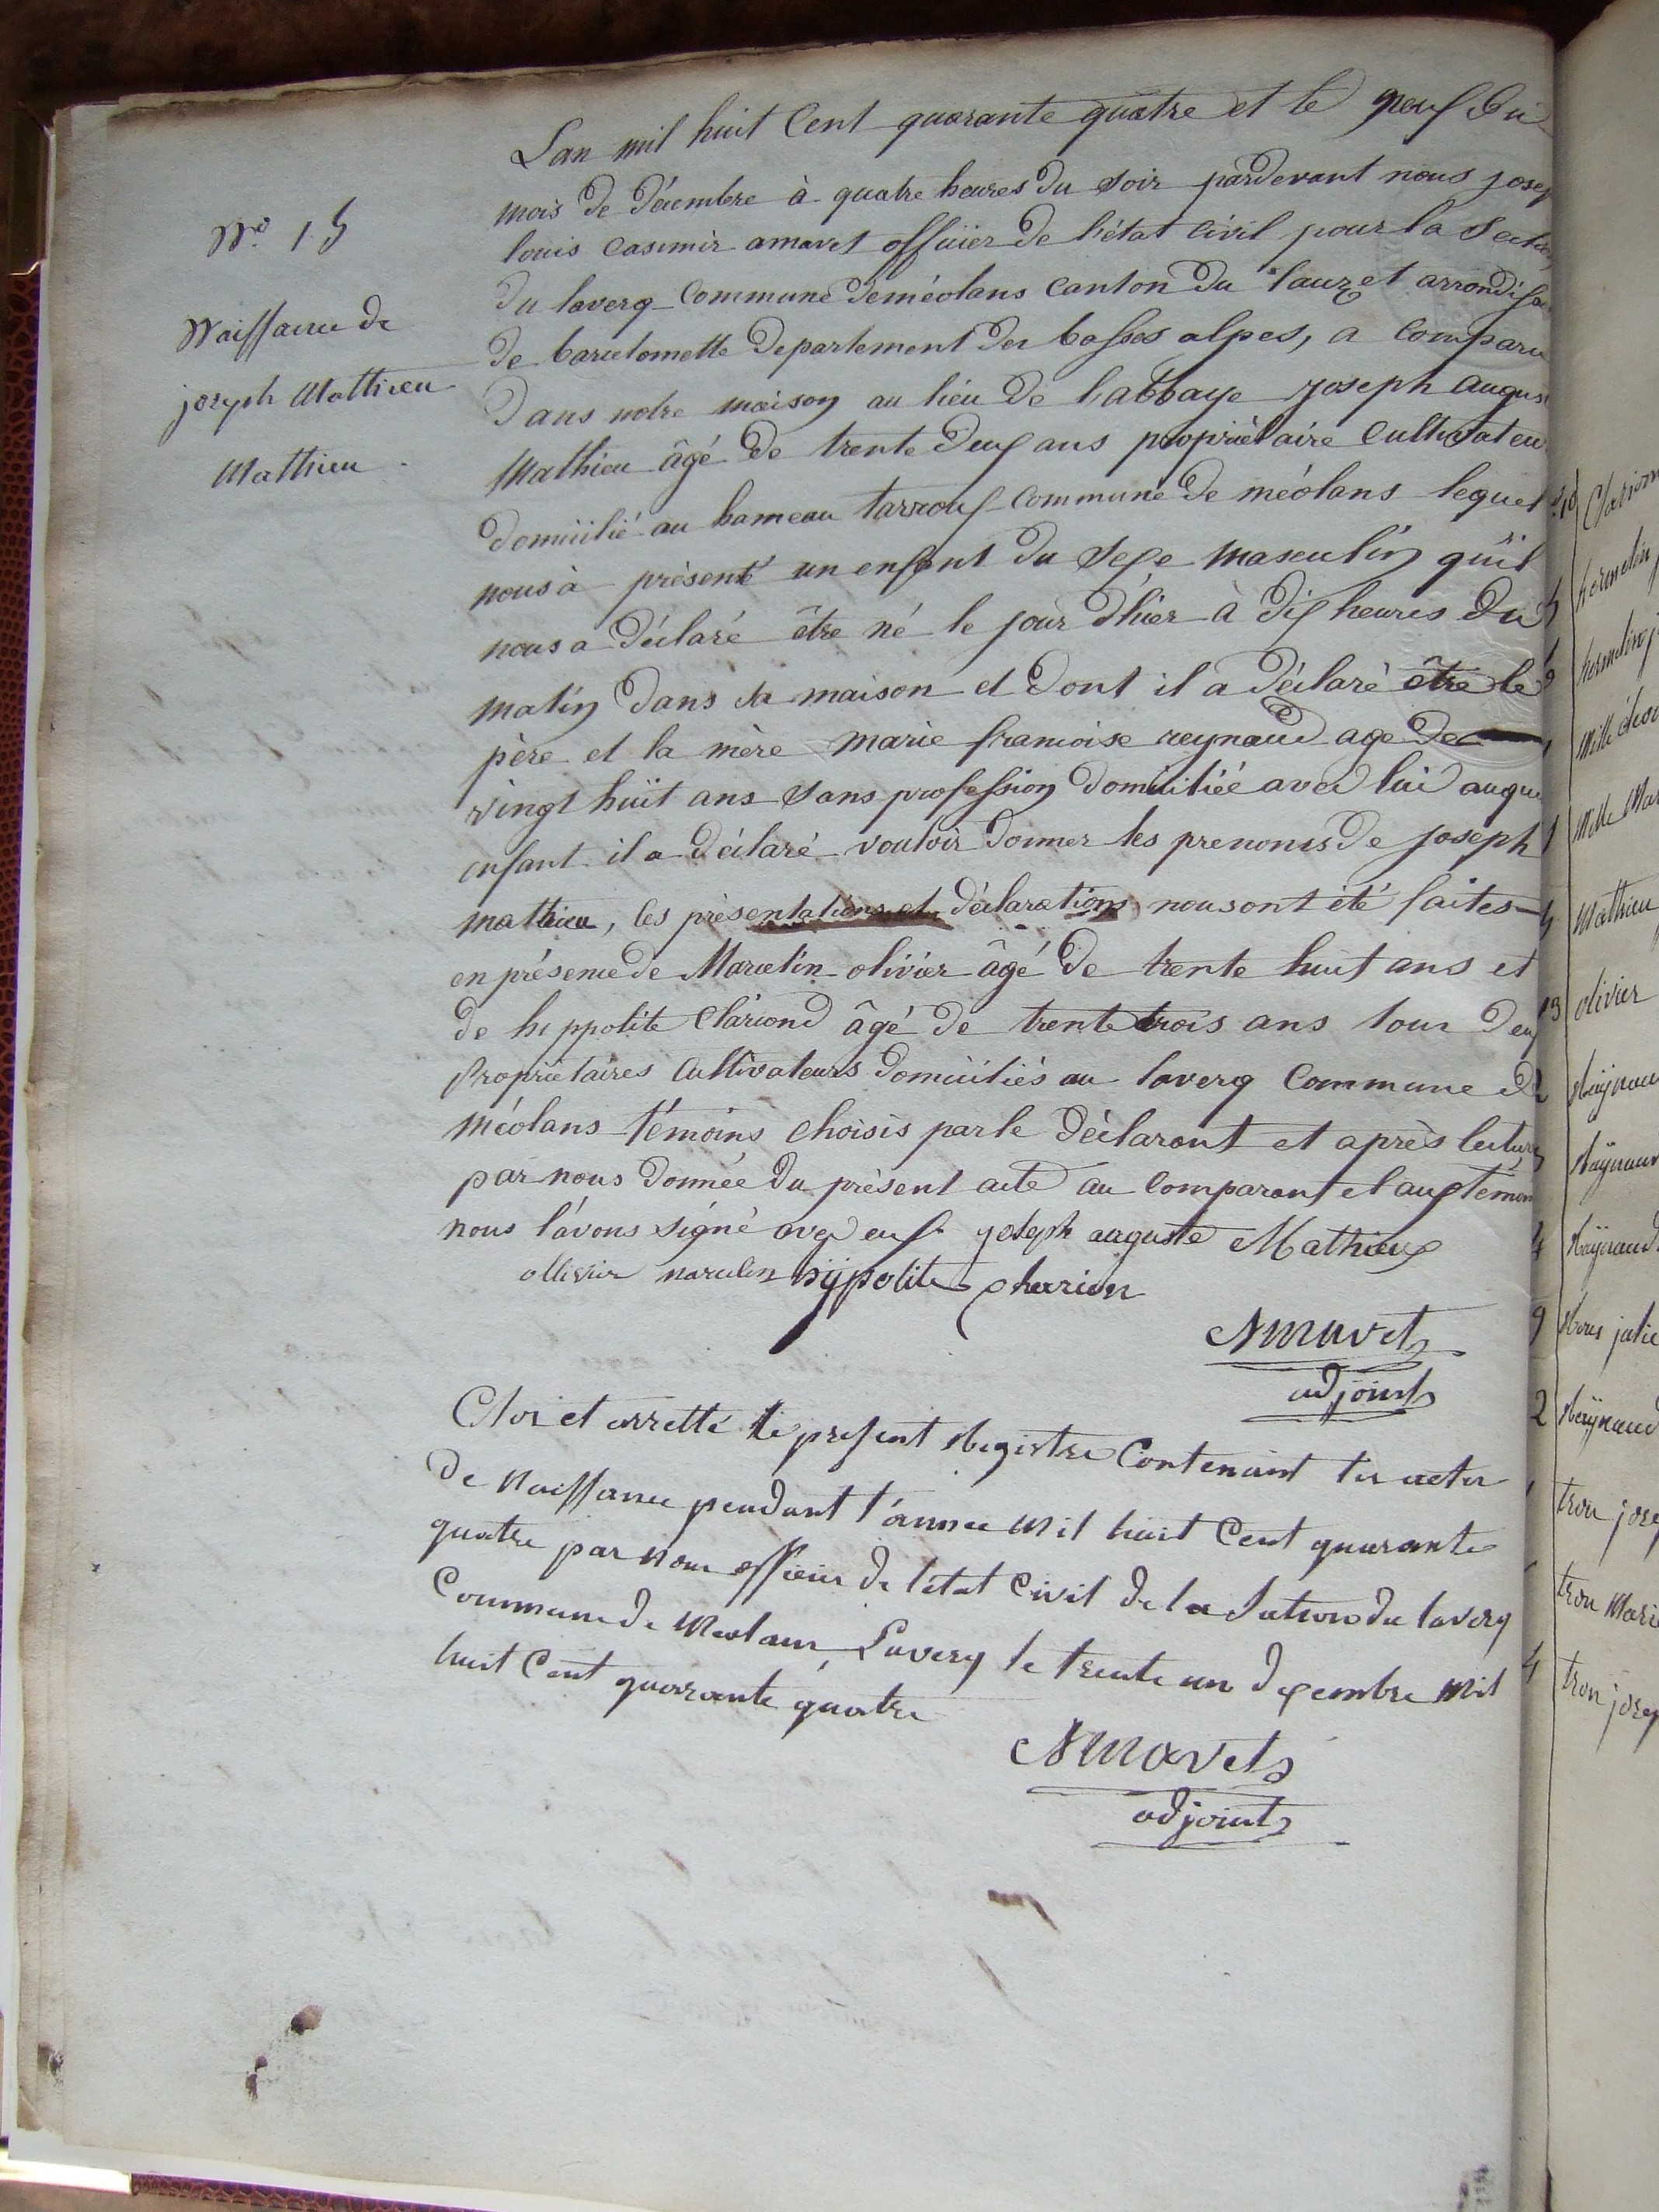 Lan mil huit Cent quarante quatre et le neuf Du
mois de décembre à quatre heures du soir pardevant nous josep
louis casimir amavet officier de l'état civil pour la Sectio
du laverq commune de méolans canton du lauzet arrondisse
de barcelonnette Departement des basses alpes, a comparu
Dans notre maison au lieu de l'abbaye joseph augus
Mathieu âgé de trente deux ans propriétaire cultivateu
domicilié au hameau tarroux commune de méolans lequel
nous à présenté un enfant du sexe masculin qu'il
nous a déclaré être né le jour d'hier à dix heures du
matin dans sa maison et dont il a déclaré être le
père et la mère marie francoise reynaud age de
vingt huit ans sans profession domiciliée avec lui auque
enfant il a déclaré vouloir donner les prenoms de joseph
mathieu, les présentations et déclarations nous ont été faites
en présence de Marcelin olivier âgé de trente huit ans et
de hippolite Clariond âgé de trente trois ans tous deux
propriétaires cultivateurs domiciliés au laverq commune de
méolans témoins choisis par le déclarant et après lecture
par nous donnée du présent acte au comparant et aux témoin
nous l'avons signé avec eux joseph auguste Mathieu
ollivier marcelin hypolite clarion
Amavet
adjoint
Clos et arretté le présent Registre Contenant les actes
de Naissance pendant l'année mil huit Cent quarante
quatre par nous officier de l'état Civil de la Section du laverq
Commune de Meolans, Laverq le trente un decembre mil
huit Cent quarante quatre
Amavet
adjoint
N.º 15
Naissance de
joseph Mathieu
Mathieu
Clarion
hermelin
hermelin j
Mille
Mille Mar
Mathieu
olivier
Raynau
Raynau
Raynaud
Roux julie
Raynaud
tron josep
tron Marie
tron josep